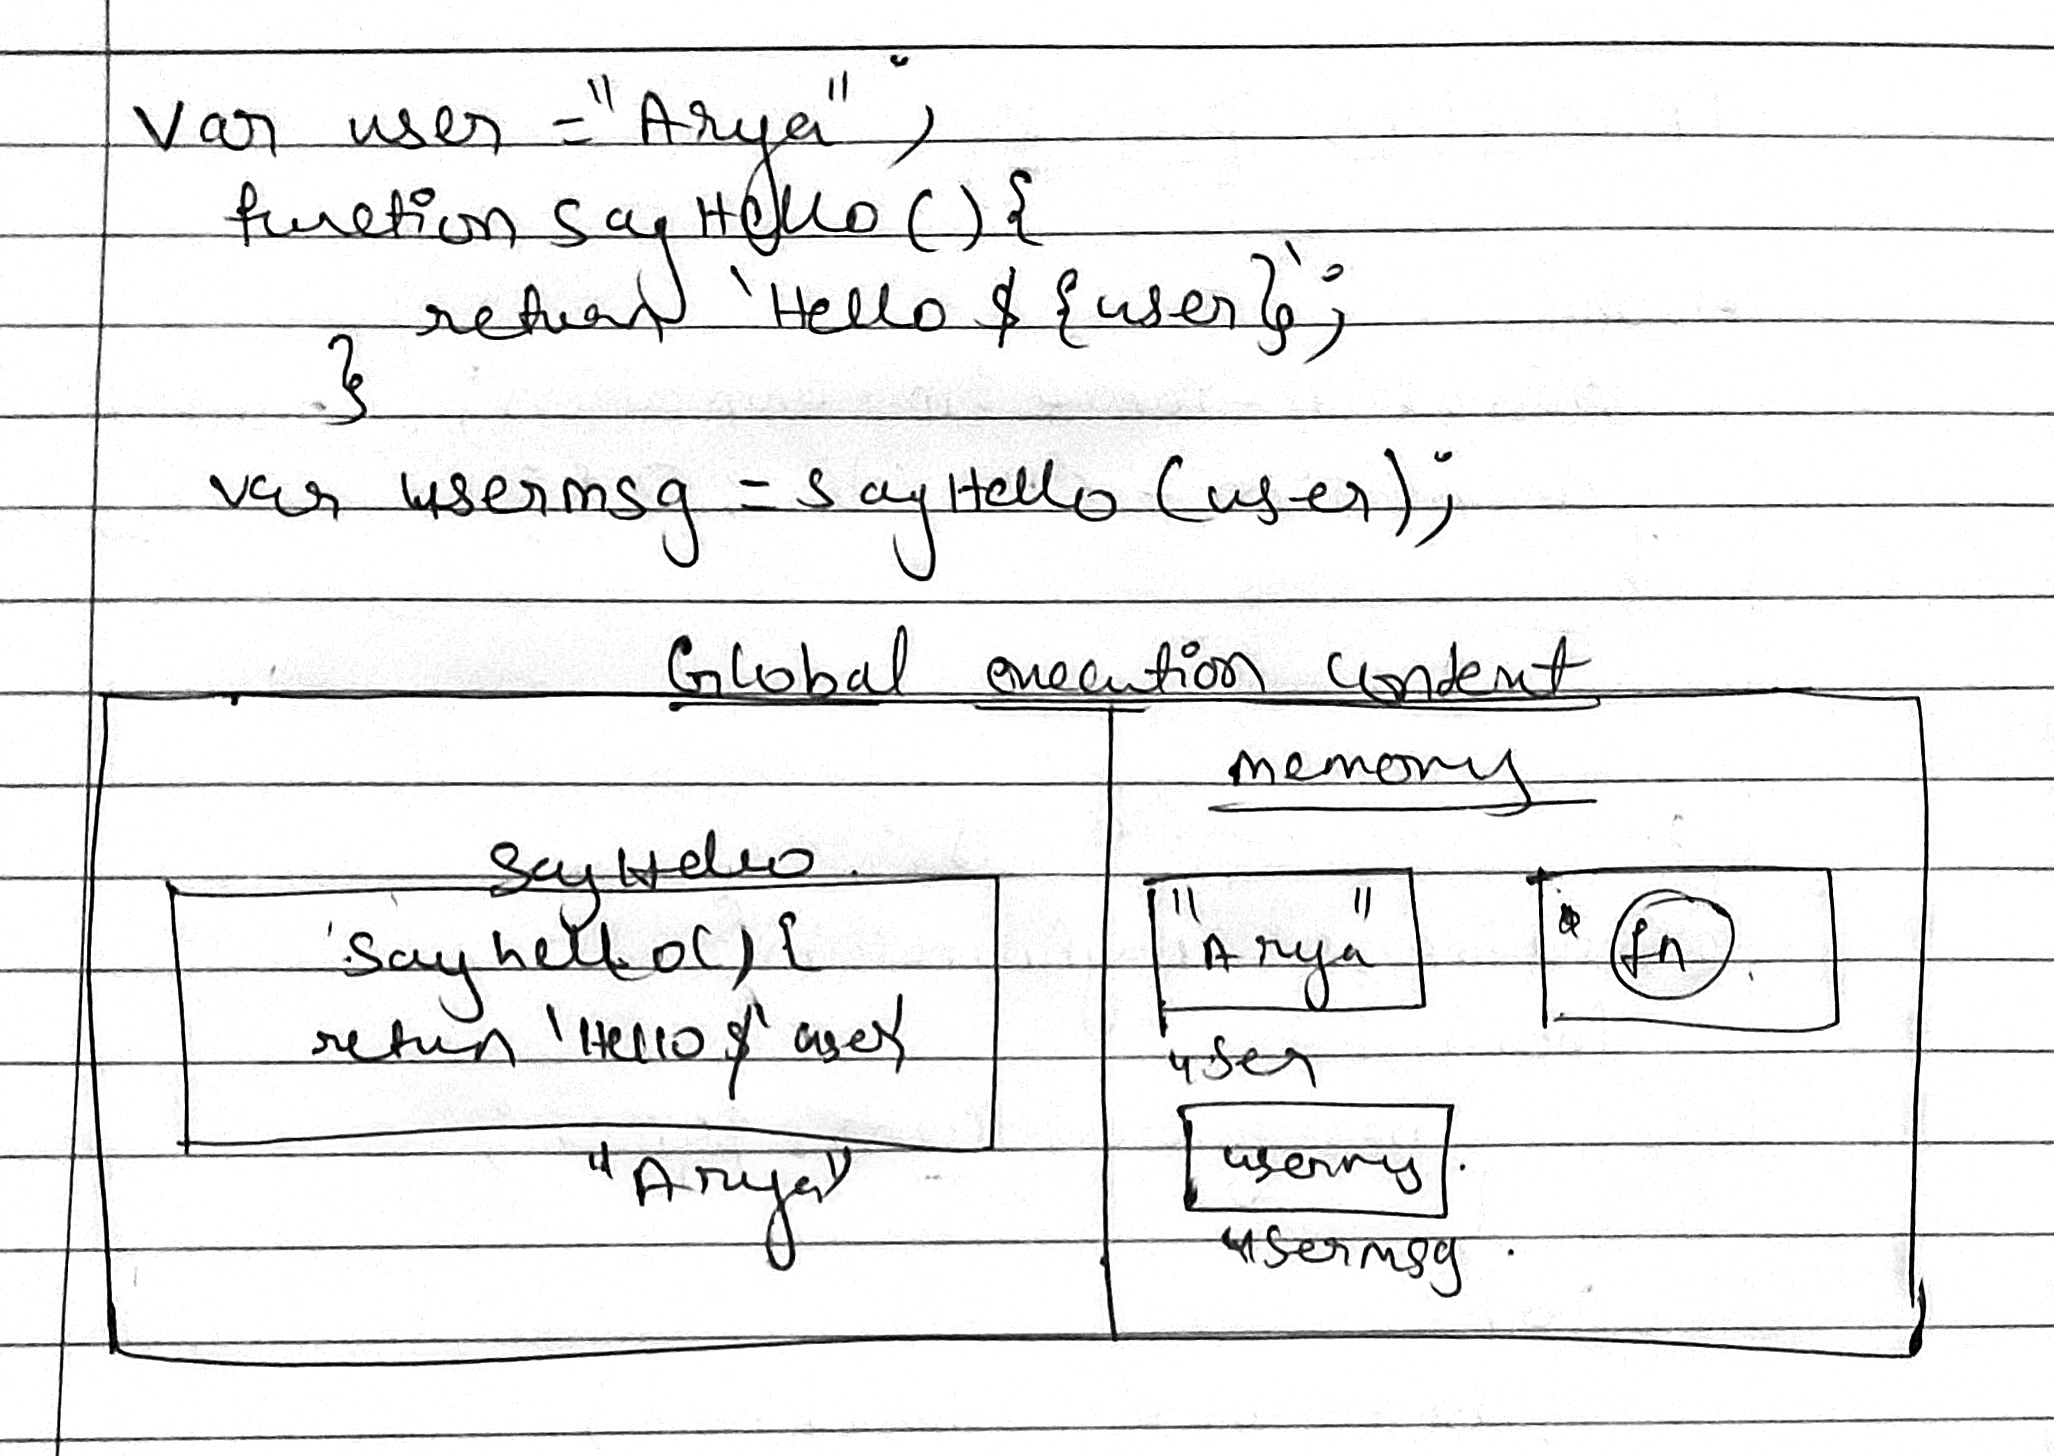 var user = "Arya";
function sayHello(){
return `Hello ${user}`;
}
var usermsg = sayHello(user);
Global execution context
memory
SayHello
sayhello(){
return 'Hello $' user
"Arya"
"Arya"
fn
user
usermsg